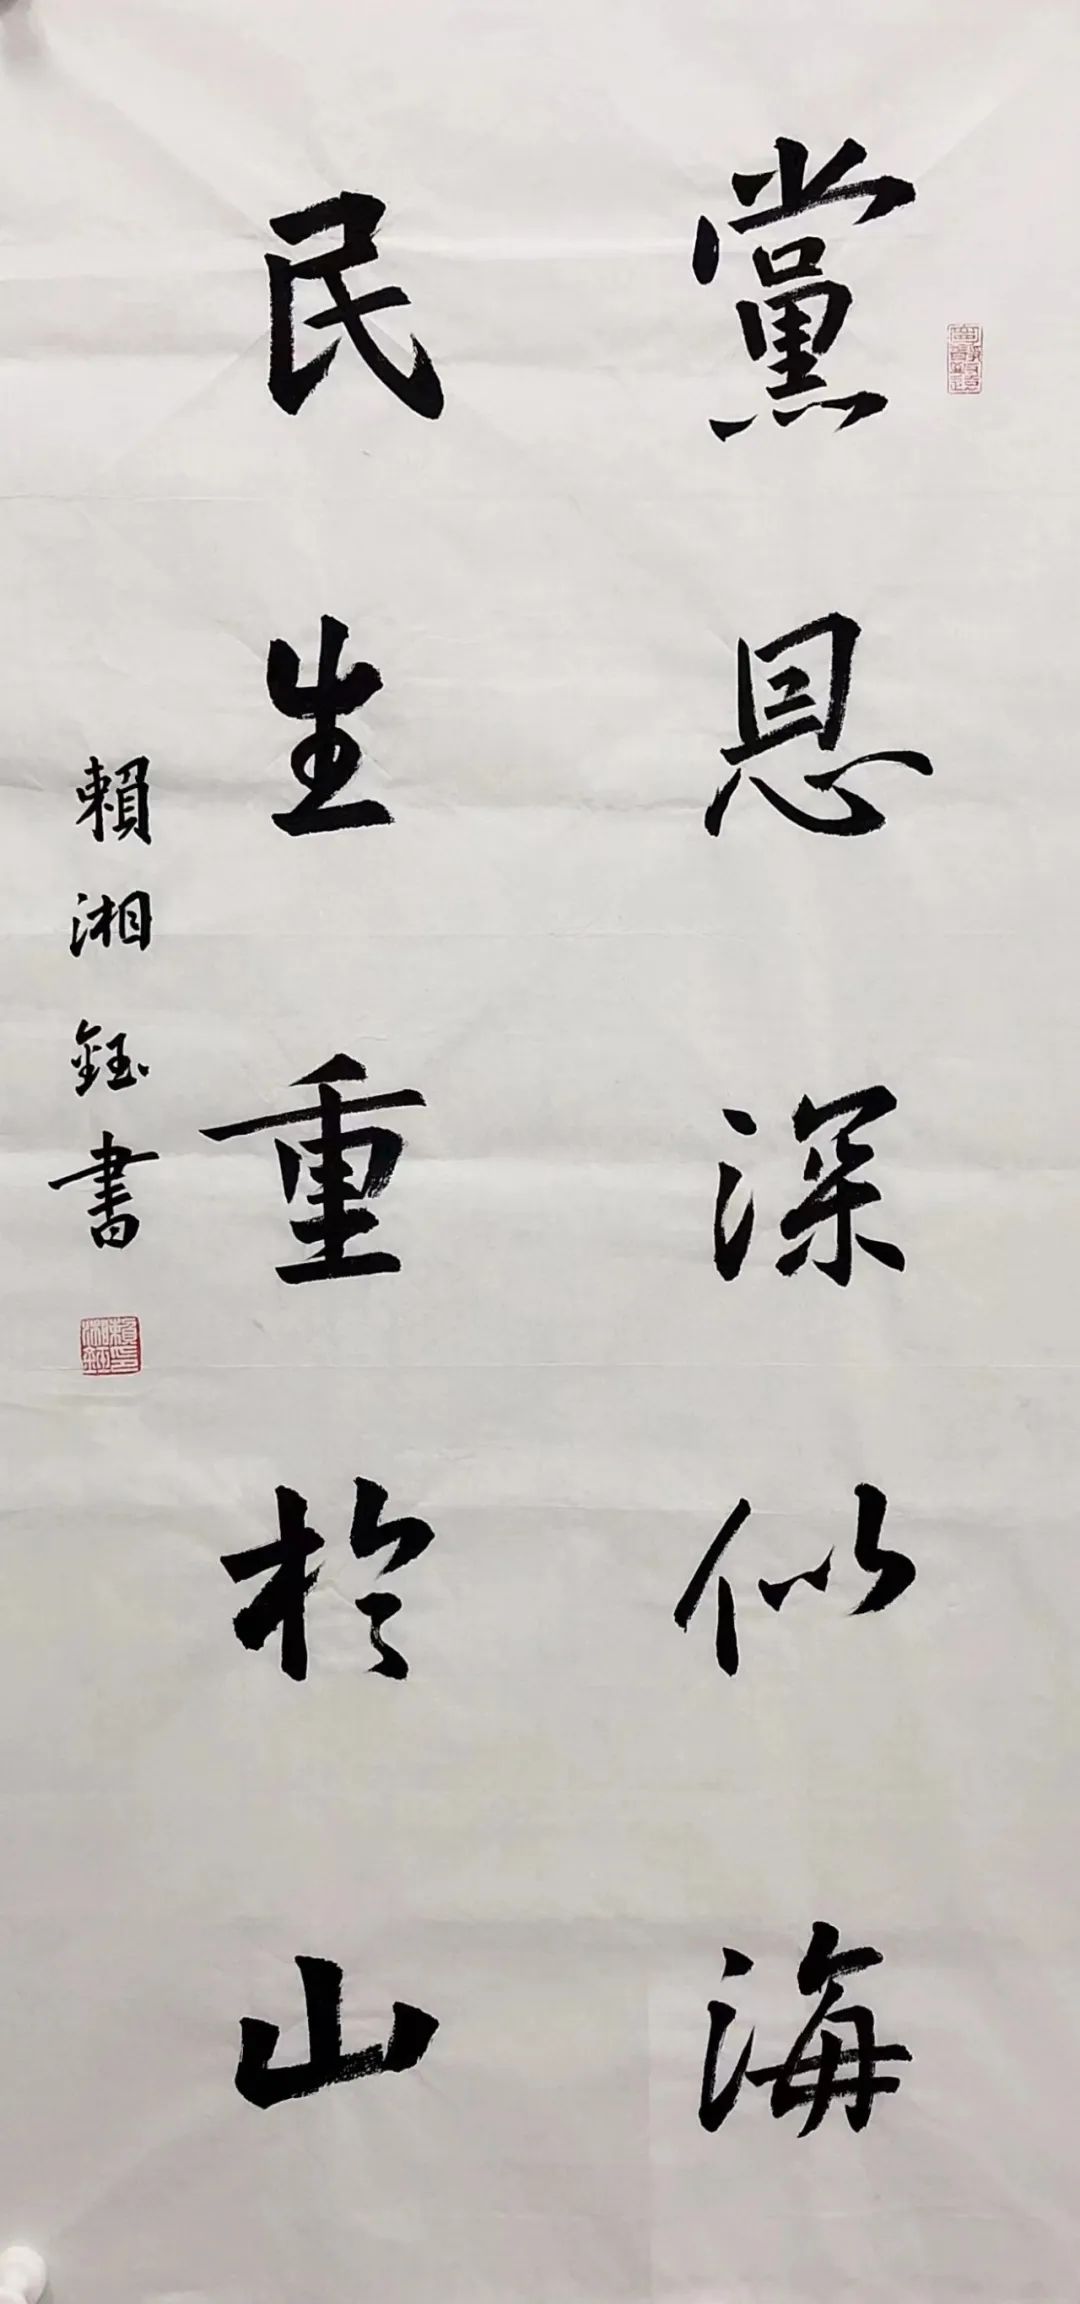 黨恩深似海
民生重於山
賴湘鈺書